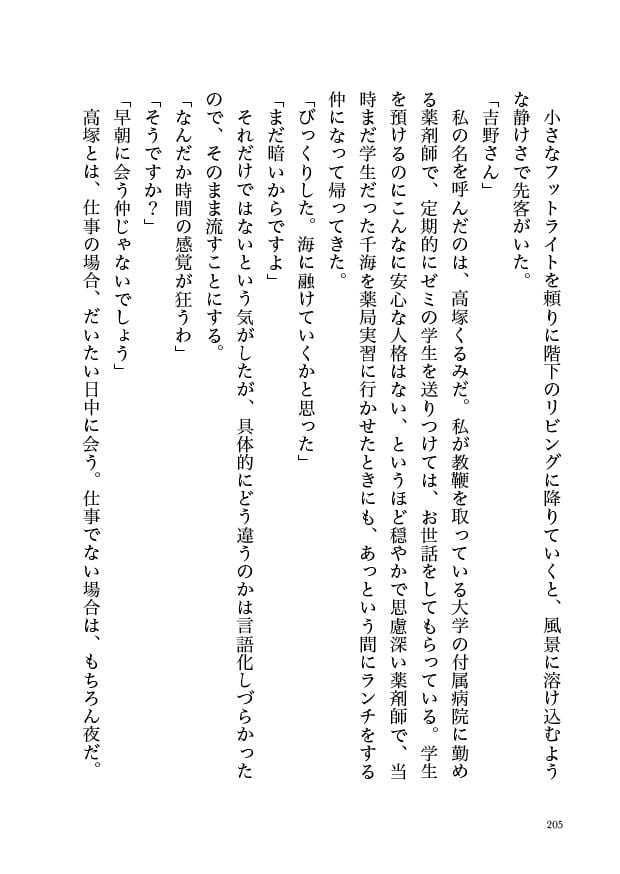 小さなフットライトを頼りに階下のリビングに降りていくと、風景に溶け込むよう
な静けさで先客がいた。
「吉野さん」
　私の名を呼んだのは、高塚くるみだ。私が教鞭を取っている大学の付属病院に勤め
る薬剤師で、定期的にゼミの学生を送りつけては、お世話をしてもらっている。学生
を預けるのにこんなに安心な人格はない、というほど穏やかで思慮深い薬剤師で、当
時まだ学生だった千海を薬局実習に行かせたときにも、あっという間にランチをする
仲になって帰ってきた。
「びっくりした。海に融けていくかと思った」
「まだ暗いからですよ」
　それだけではないという気がしたが、具体的にどう違うのかは言語化しづらかった
ので、そのまま流すことにする。
「なんだか時間の感覚が狂うわ」
「そうですか？」
「早朝に会う仲じゃないでしょう」
　高塚とは、仕事の場合、だいたい日中に会う。仕事でない場合は、もちろん夜だ。
205